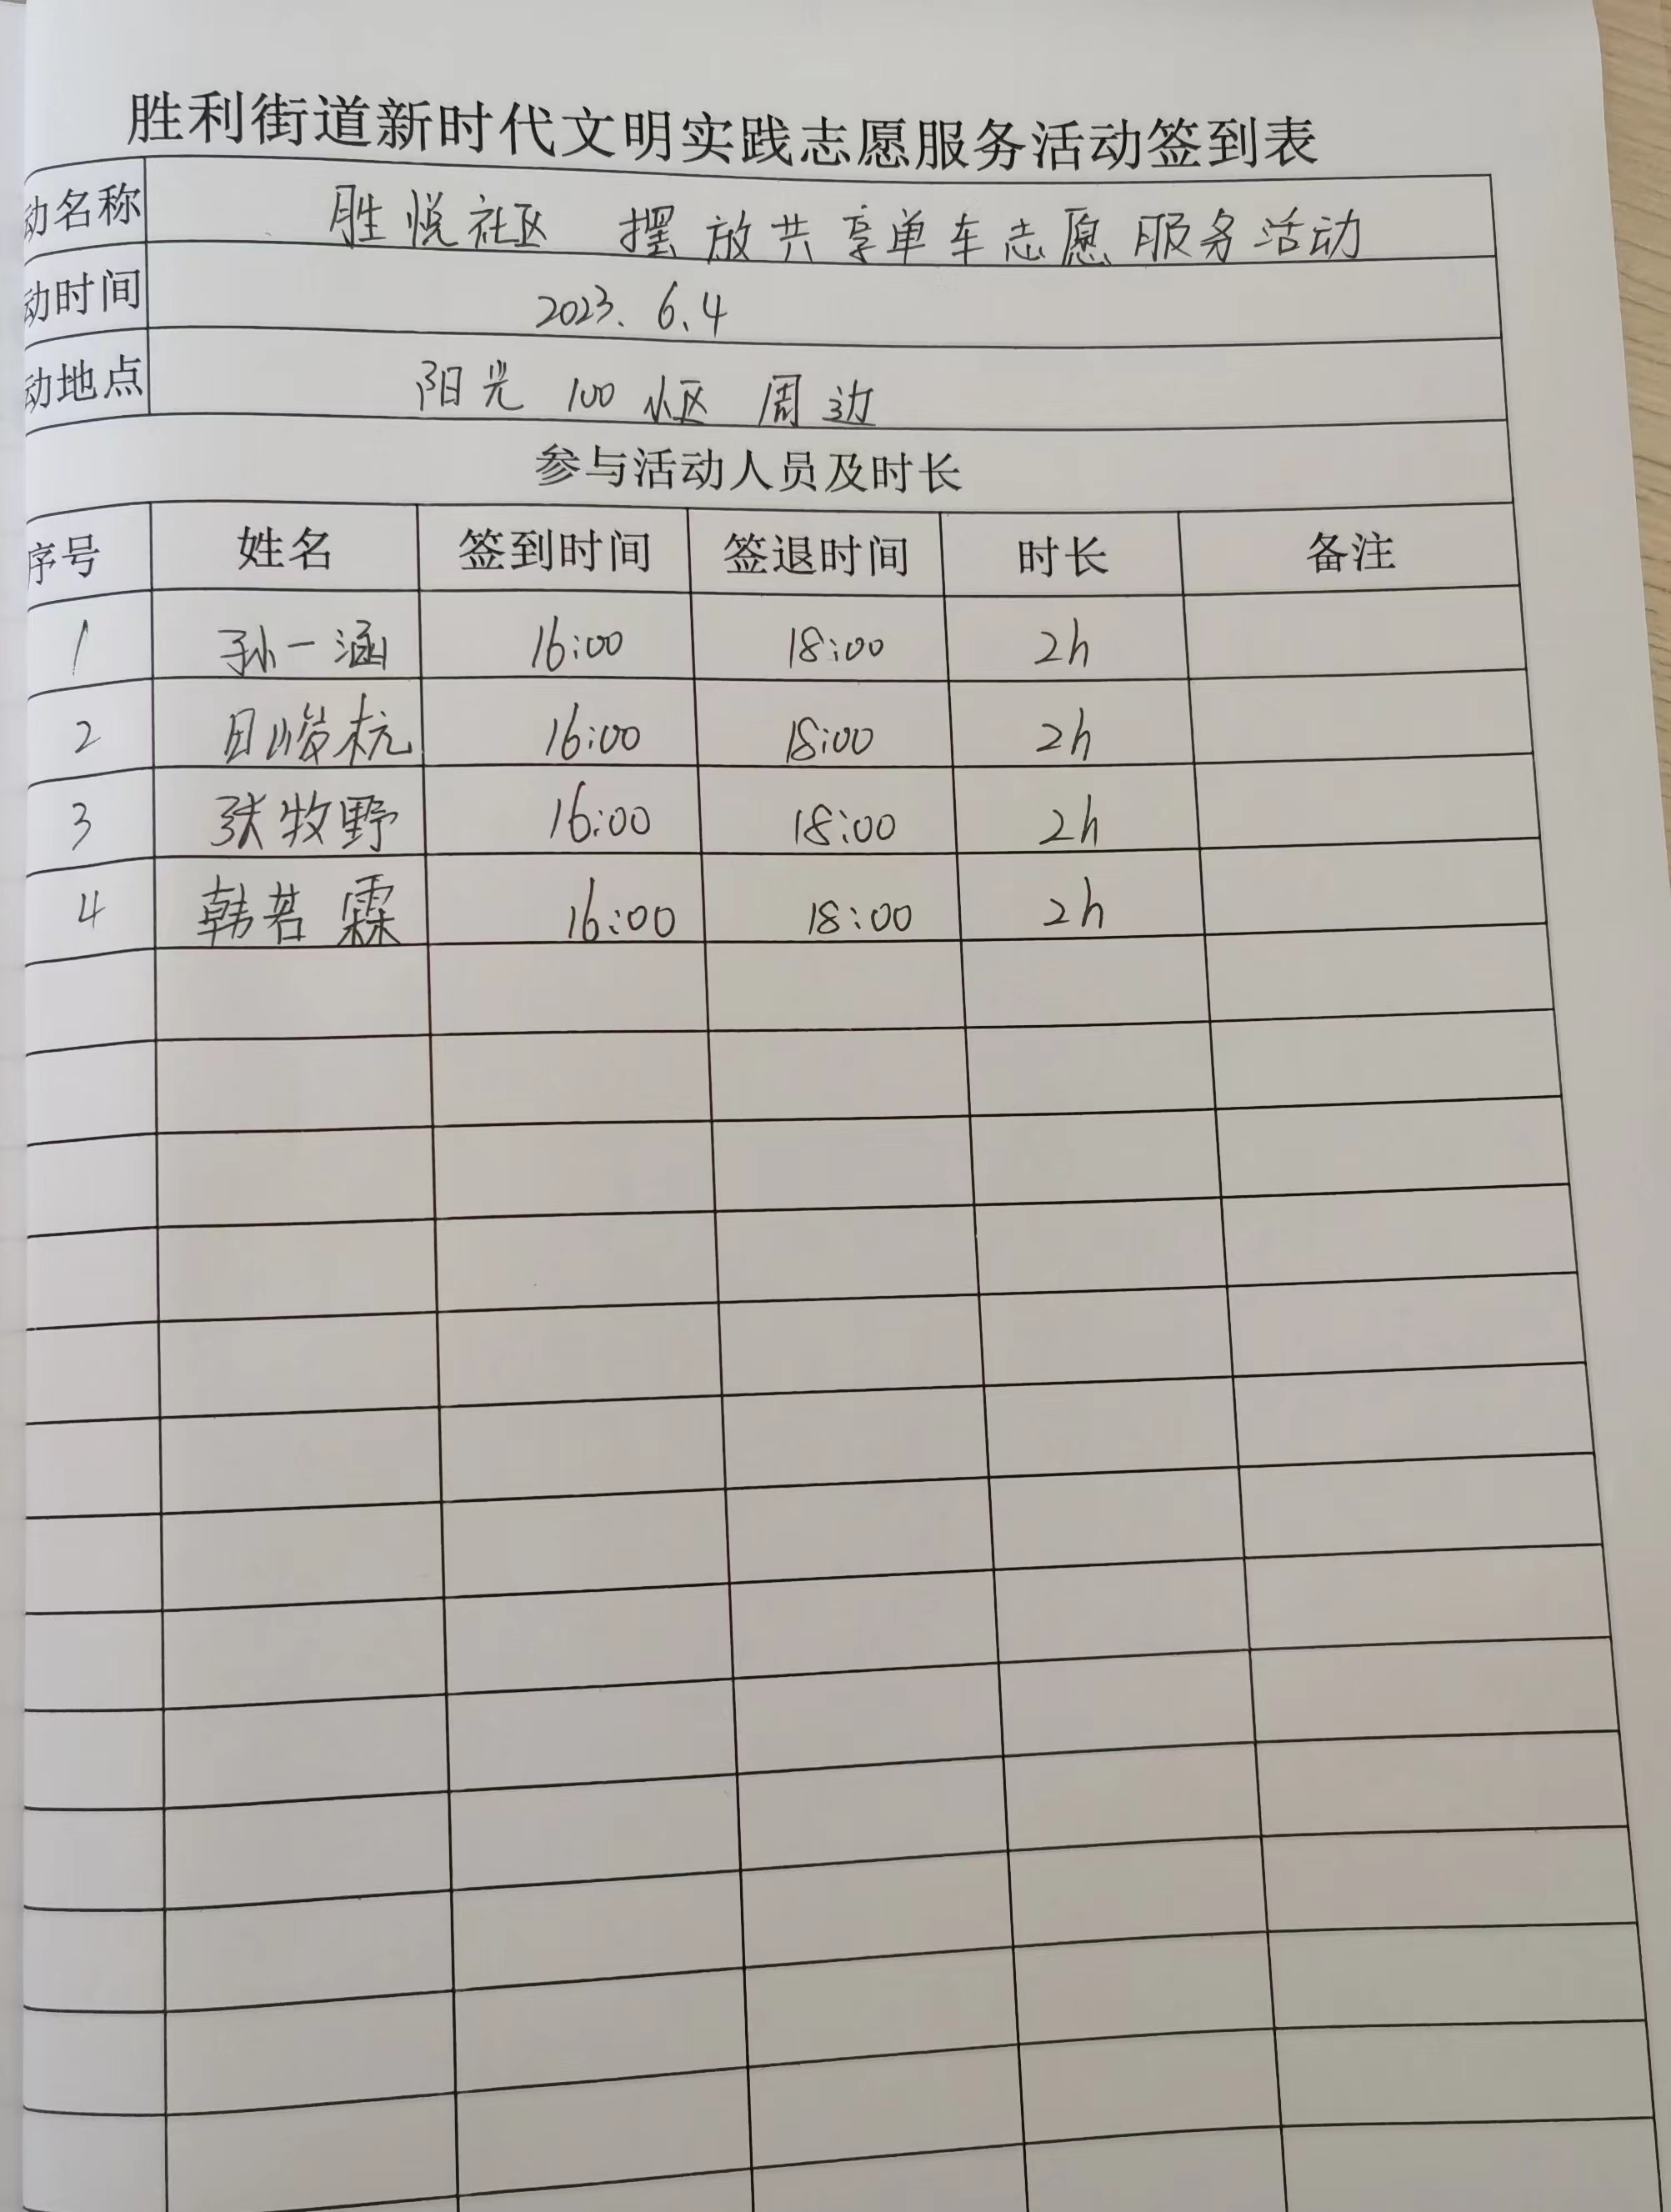 胜利街道新时代文明实践志愿服务活动签到表
动名称 胜悦社区 摆放共享单车志愿服务活动
动时间 2023.6.4
动地点 阳光100小区周边
参与活动人员及时长
序号 姓名 签到时间 签退时间 时长 备注
1 孙一涵 16:00 18:00 2h
2 吕峻杭 16:00 18:00 2h
3 张牧野 16:00 18:00 2h
4 韩若霖 16:00 18:00 2h